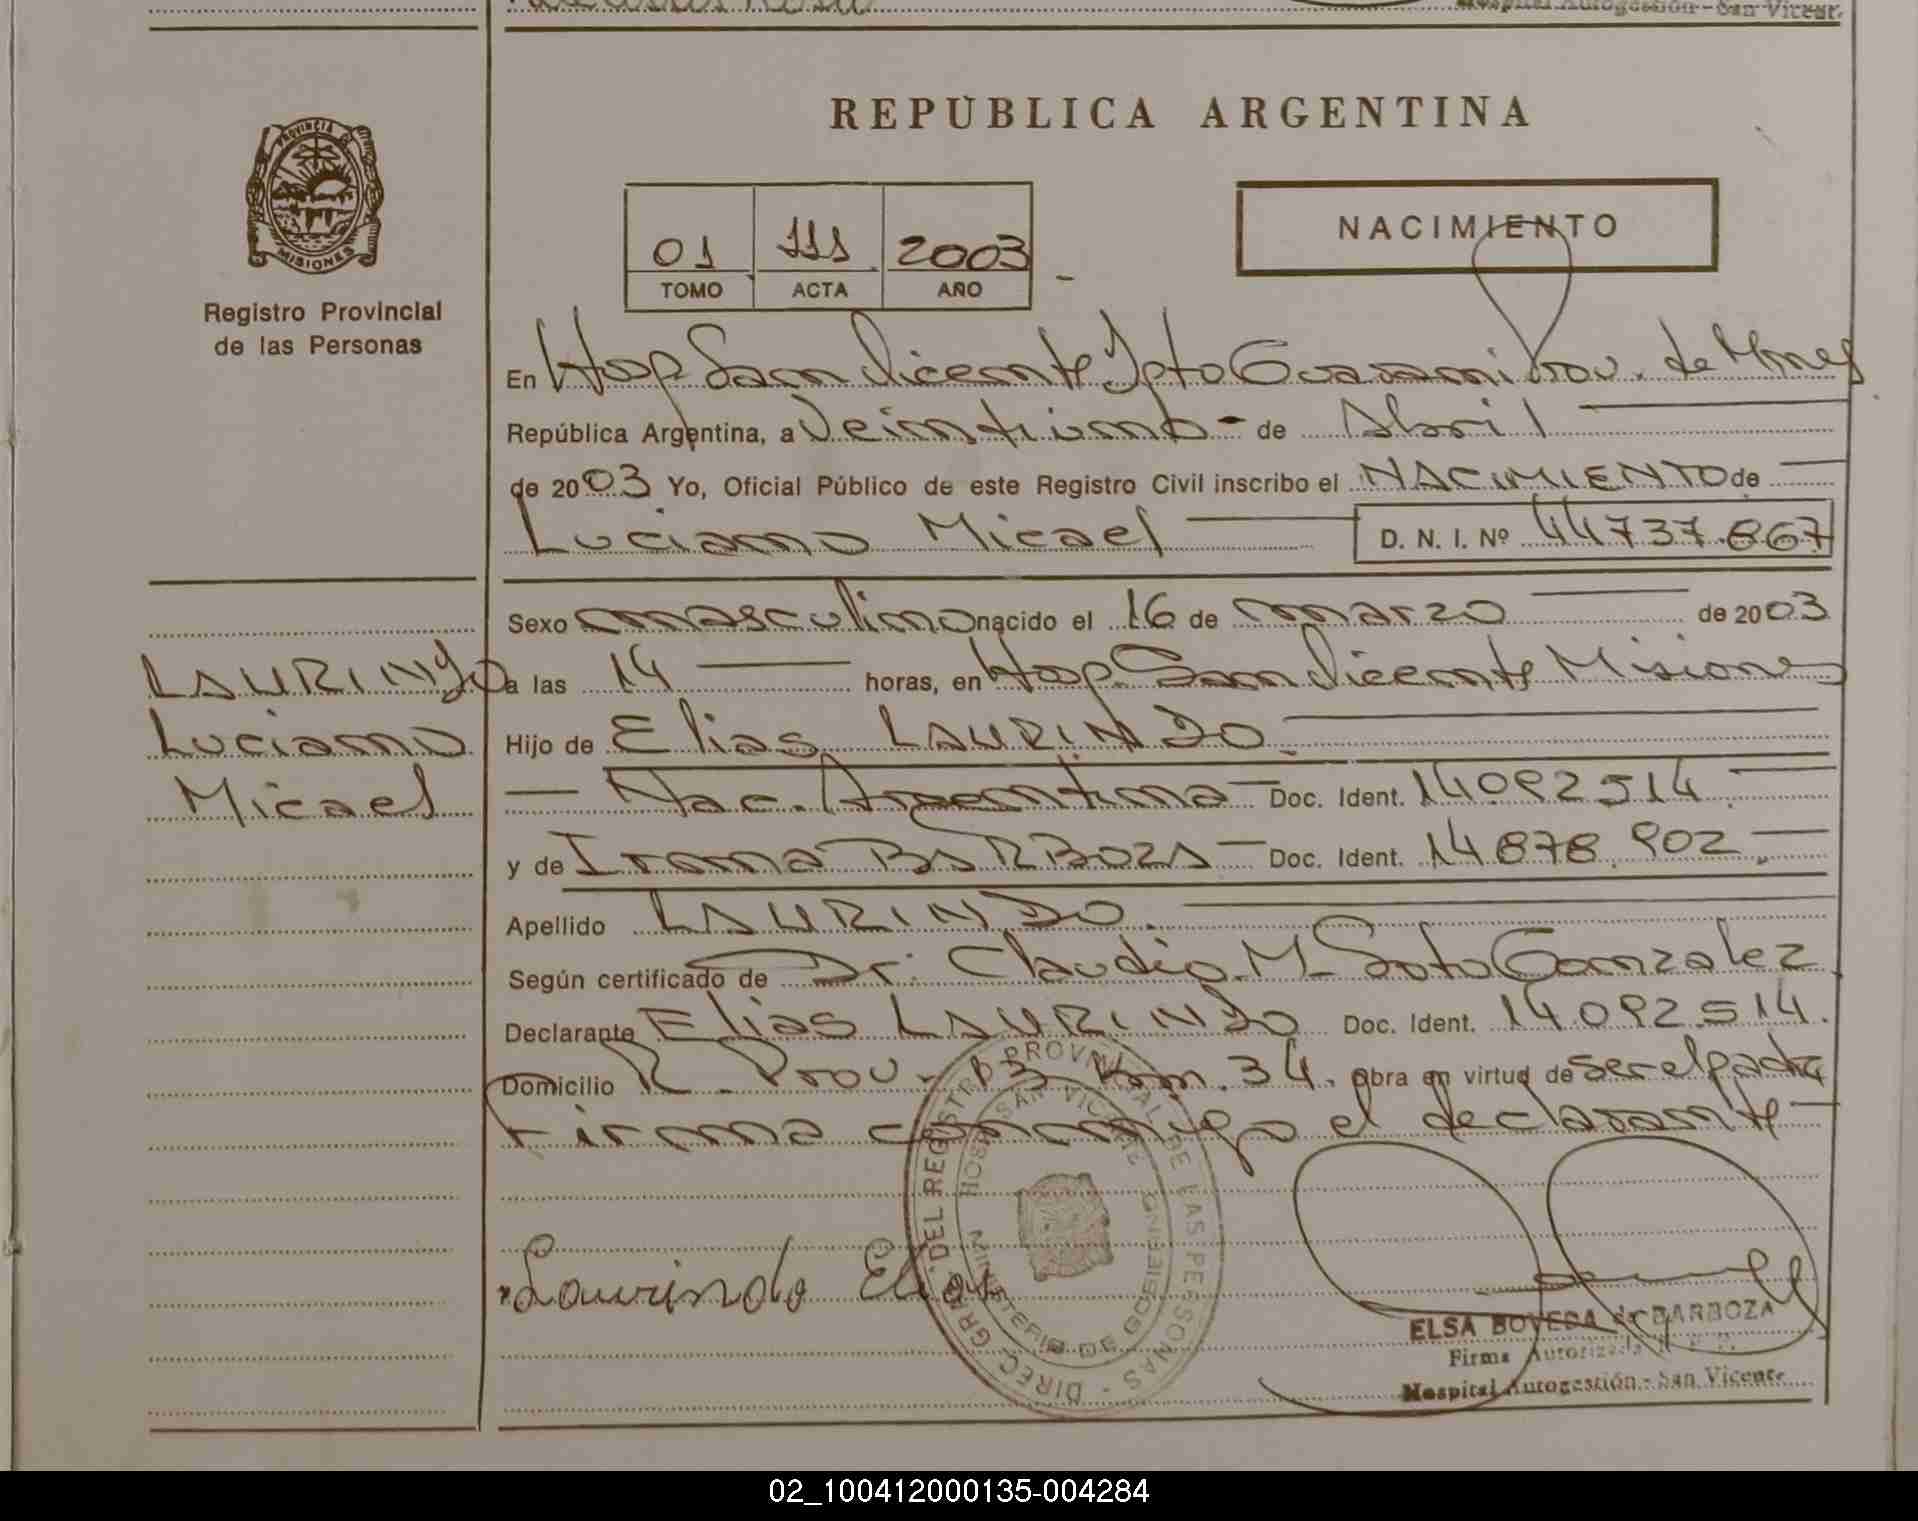 Hospital Autogestión - San Vicente.
REPUBLICA ARGENTINA
PROVINCIA DE
MISIONES
Registro Provincial
de las Personas
01 111 2003
TOMO ACTA AÑO
NACIMIENTO
En Hosp San Vicente Dpto Guarani Prov. de Mnes
República Argentina, a Veintiuno - de Abril
de 2003 Yo, Oficial Público de este Registro Civil inscribo el NACIMIENTO de
Luciano Micael D. N. I. Nº 44737.867
Sexo masculino nacido el 16 de marzo de 2003
LAURINDO
Luciano
Micael
a las 14 horas, en Hosp. San Vicente Misiones
Hijo de Elias LAURINDO.
Nac. Argentina Doc. Ident. 14092514.
y de Irma BARBOZA Doc. Ident. 14878.902.
Apellido LAURINDO.
Según certificado de Dr. Claudio M. Soto Gonzalez
Declarante Elias LAURINDO Doc. Ident. 14.092.514.
Domicilio R. Prov. 13 Km. 34. obra en virtud de ser el padre
Firma conmigo el declarante
Laurindo Elias
DIREC. GRAL. DEL REGISTRO PROVINCIAL DE LAS PERSONAS -
HOSP. SAN VICENTE
MINISTERIO DE GOBIERNO
ELSA BOVEDA de BARBOZA
Firma Autorizada
Hospital Autogestión - San Vicente
02_100412000135-004284